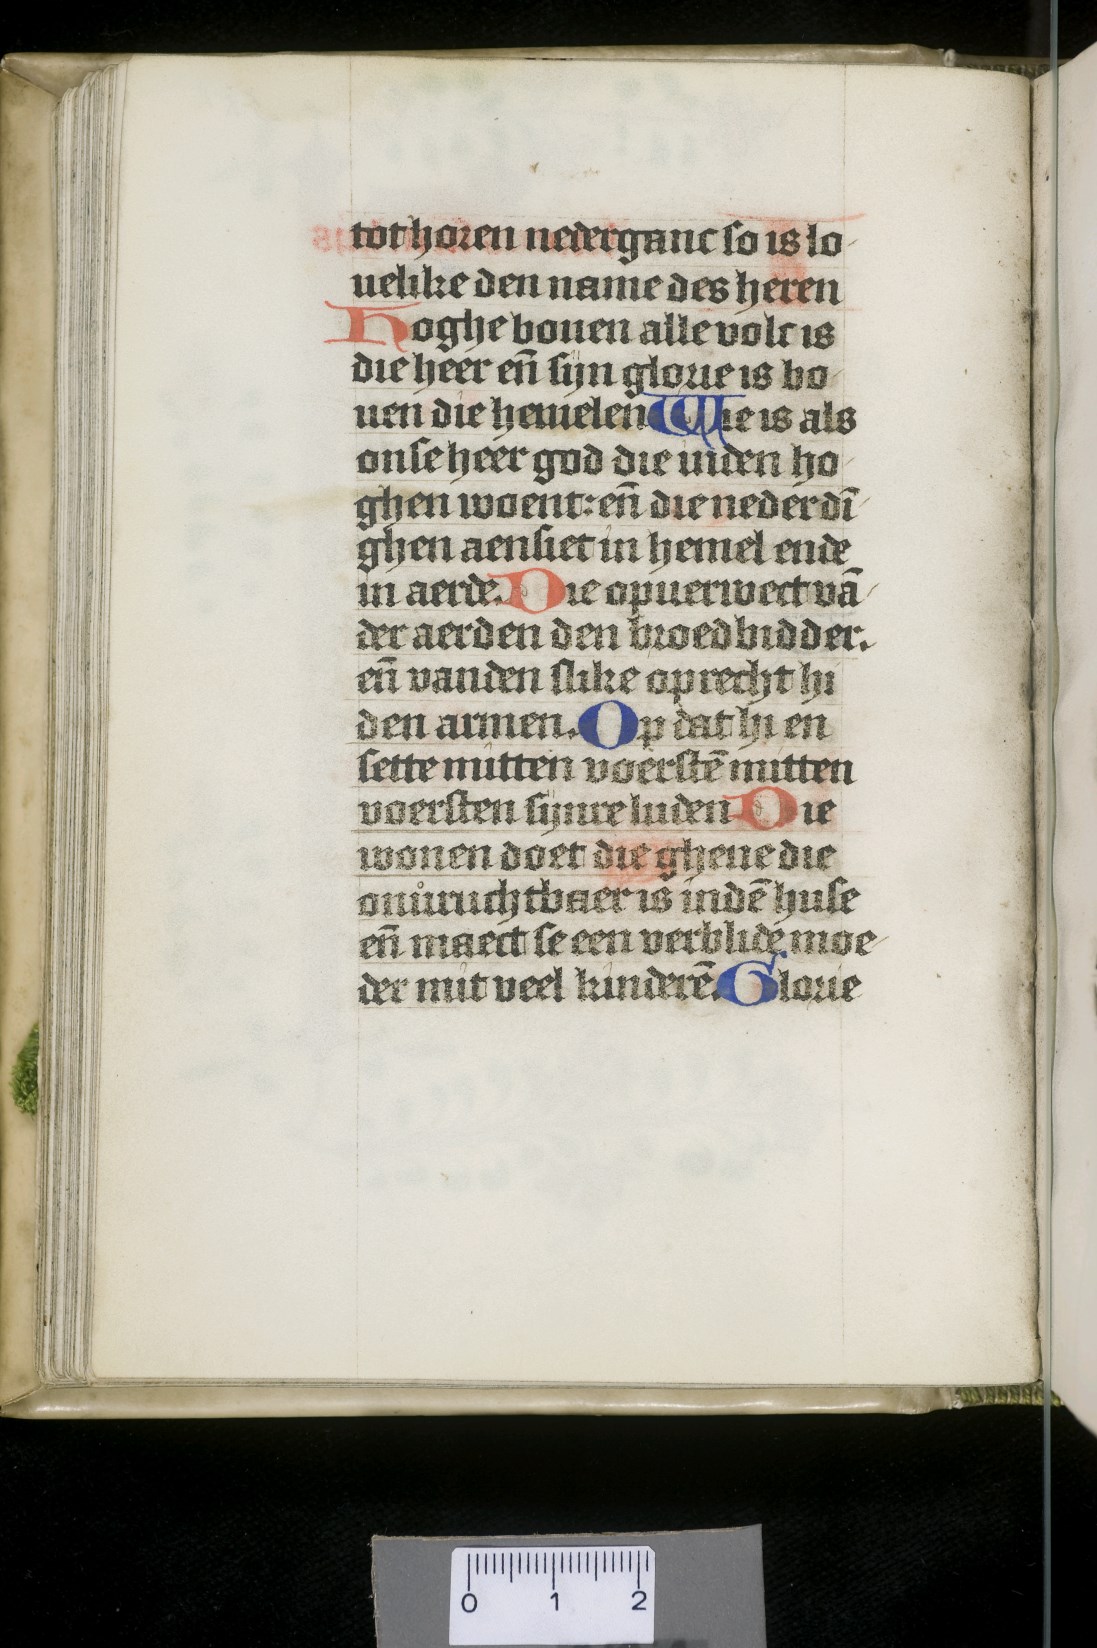 tot horen nederganc so is lo
uelike den name des heren
Hoghe bouen alle volc is
die heer en̄ sijn glorie is bo
uen die hemelen Wie is als
onse heer god die inden ho
ghen woent: en̄ die nederdī
ghen aensiet in hemel ende
in aerde. Die opuerwect vā
der aerden den broedbidder.
en̄ vanden slike oprecht hi
den armen. Op dat hi en
sette mitten voerstē mitten
voersten sijnre luden Die
wonen doet die ghene die
onvruchtbaer is indē huse
en̄ maect se een verblide moe
der mit veel kinderē. Glorie
0 1 2